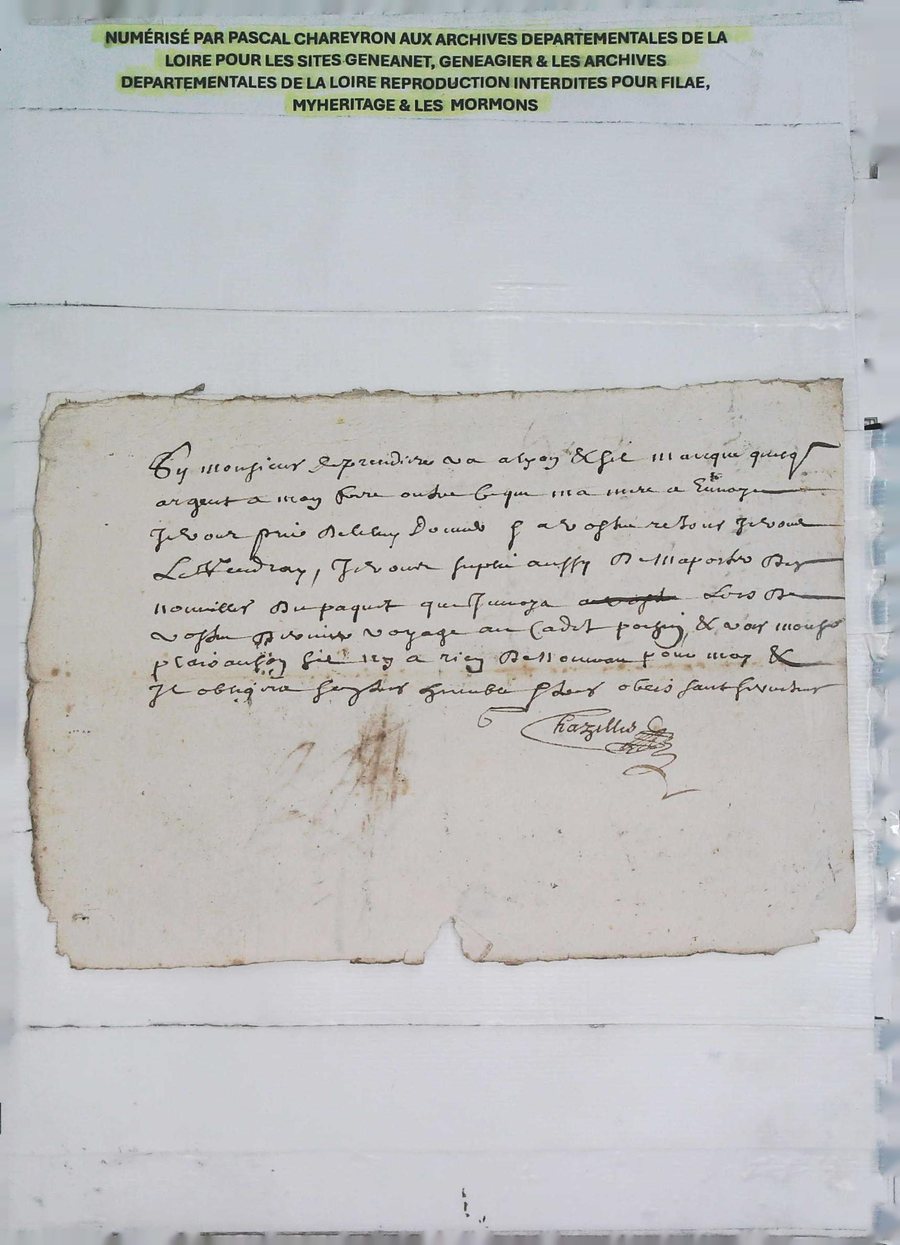 NUMÉRISÉ PAR PASCAL CHAREYRON AUX ARCHIVES DEPARTEMENTALES DE LA
LOIRE POUR LES SITES GENEANET, GENEAGIER & LES ARCHIVES
DEPARTEMENTALES DE LA LOIRE REPRODUCTION INTERDITES POUR FILAE,
MYHERITAGE & LES MORMONS
Sy monsieur va a lyon & sil manque
argent a mon frere oultre ce que ma mere a
Je vous prie de luy donner & a vostre retour Je vous
Le Rendray, Je vous suplie aussy de maporter des
nouvelles du paquet que Jenvoya Lors de
vostre dernier voyage au Cadet & voir
sil ny a rien de nouveau pour moy &
Il obligera humble & obeissant serviteur
Chazelles